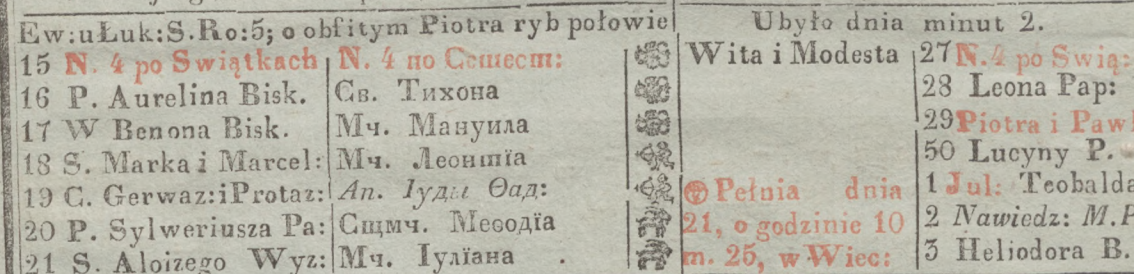 Ew:uŁuk:S.Ro:5; o obfitym Piotra ryb połowie
Ubyło dnia minut 2.
15 N. 4 po Swiątkach
N. 4 по Сошест:
Wita i Modesta
27 N. 4 po Swią:
16 P. Aurelina Bisk.
Св. Тихона
28 Leona Pap:
17 W Benona Bisk.
Мч. Мануила
29 Piotra i Paw
18 S. Marka i Marcel:
Мч. Леонтїа
50 Lucyny P.
19 C. Gerwaz:iProtaz:
Ап. Іуды Ѳад:
Pełnia dnia
1 Jul: Teobalda
20 P. Sylweriusza Pa:
Сщмч. Меѳодїа
21, o godzinie 10
2 Nawiedz: M.P
21 S. Aloizego Wyz:
Мч. Іулїана .
m. 25, w Wiec:
3 Heliodora B.